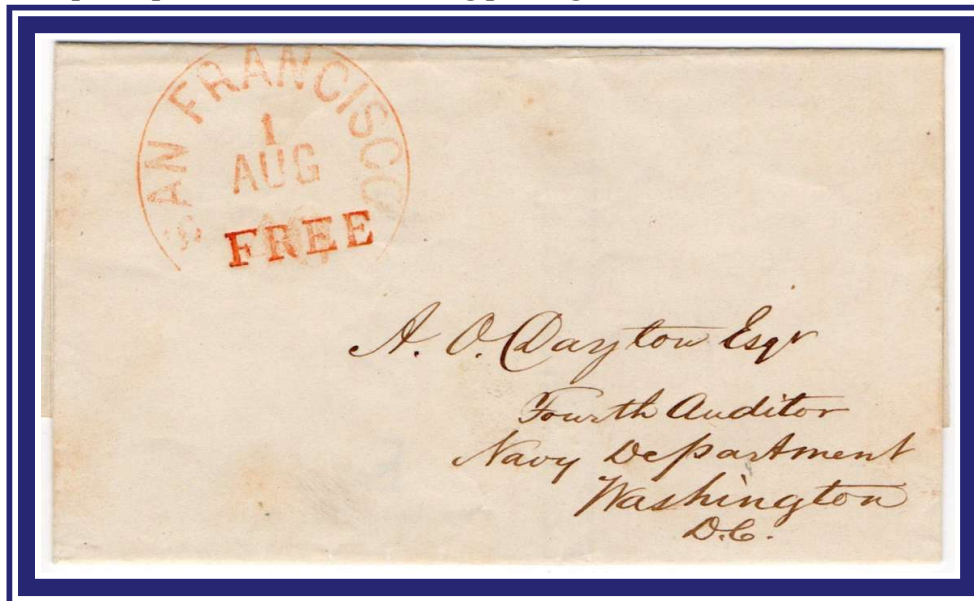 SAN FRANCISCO
1
AUG
FREE
A. O. Dayton Esqr
Fourth Auditor
Navy Department
Washington
D.C.